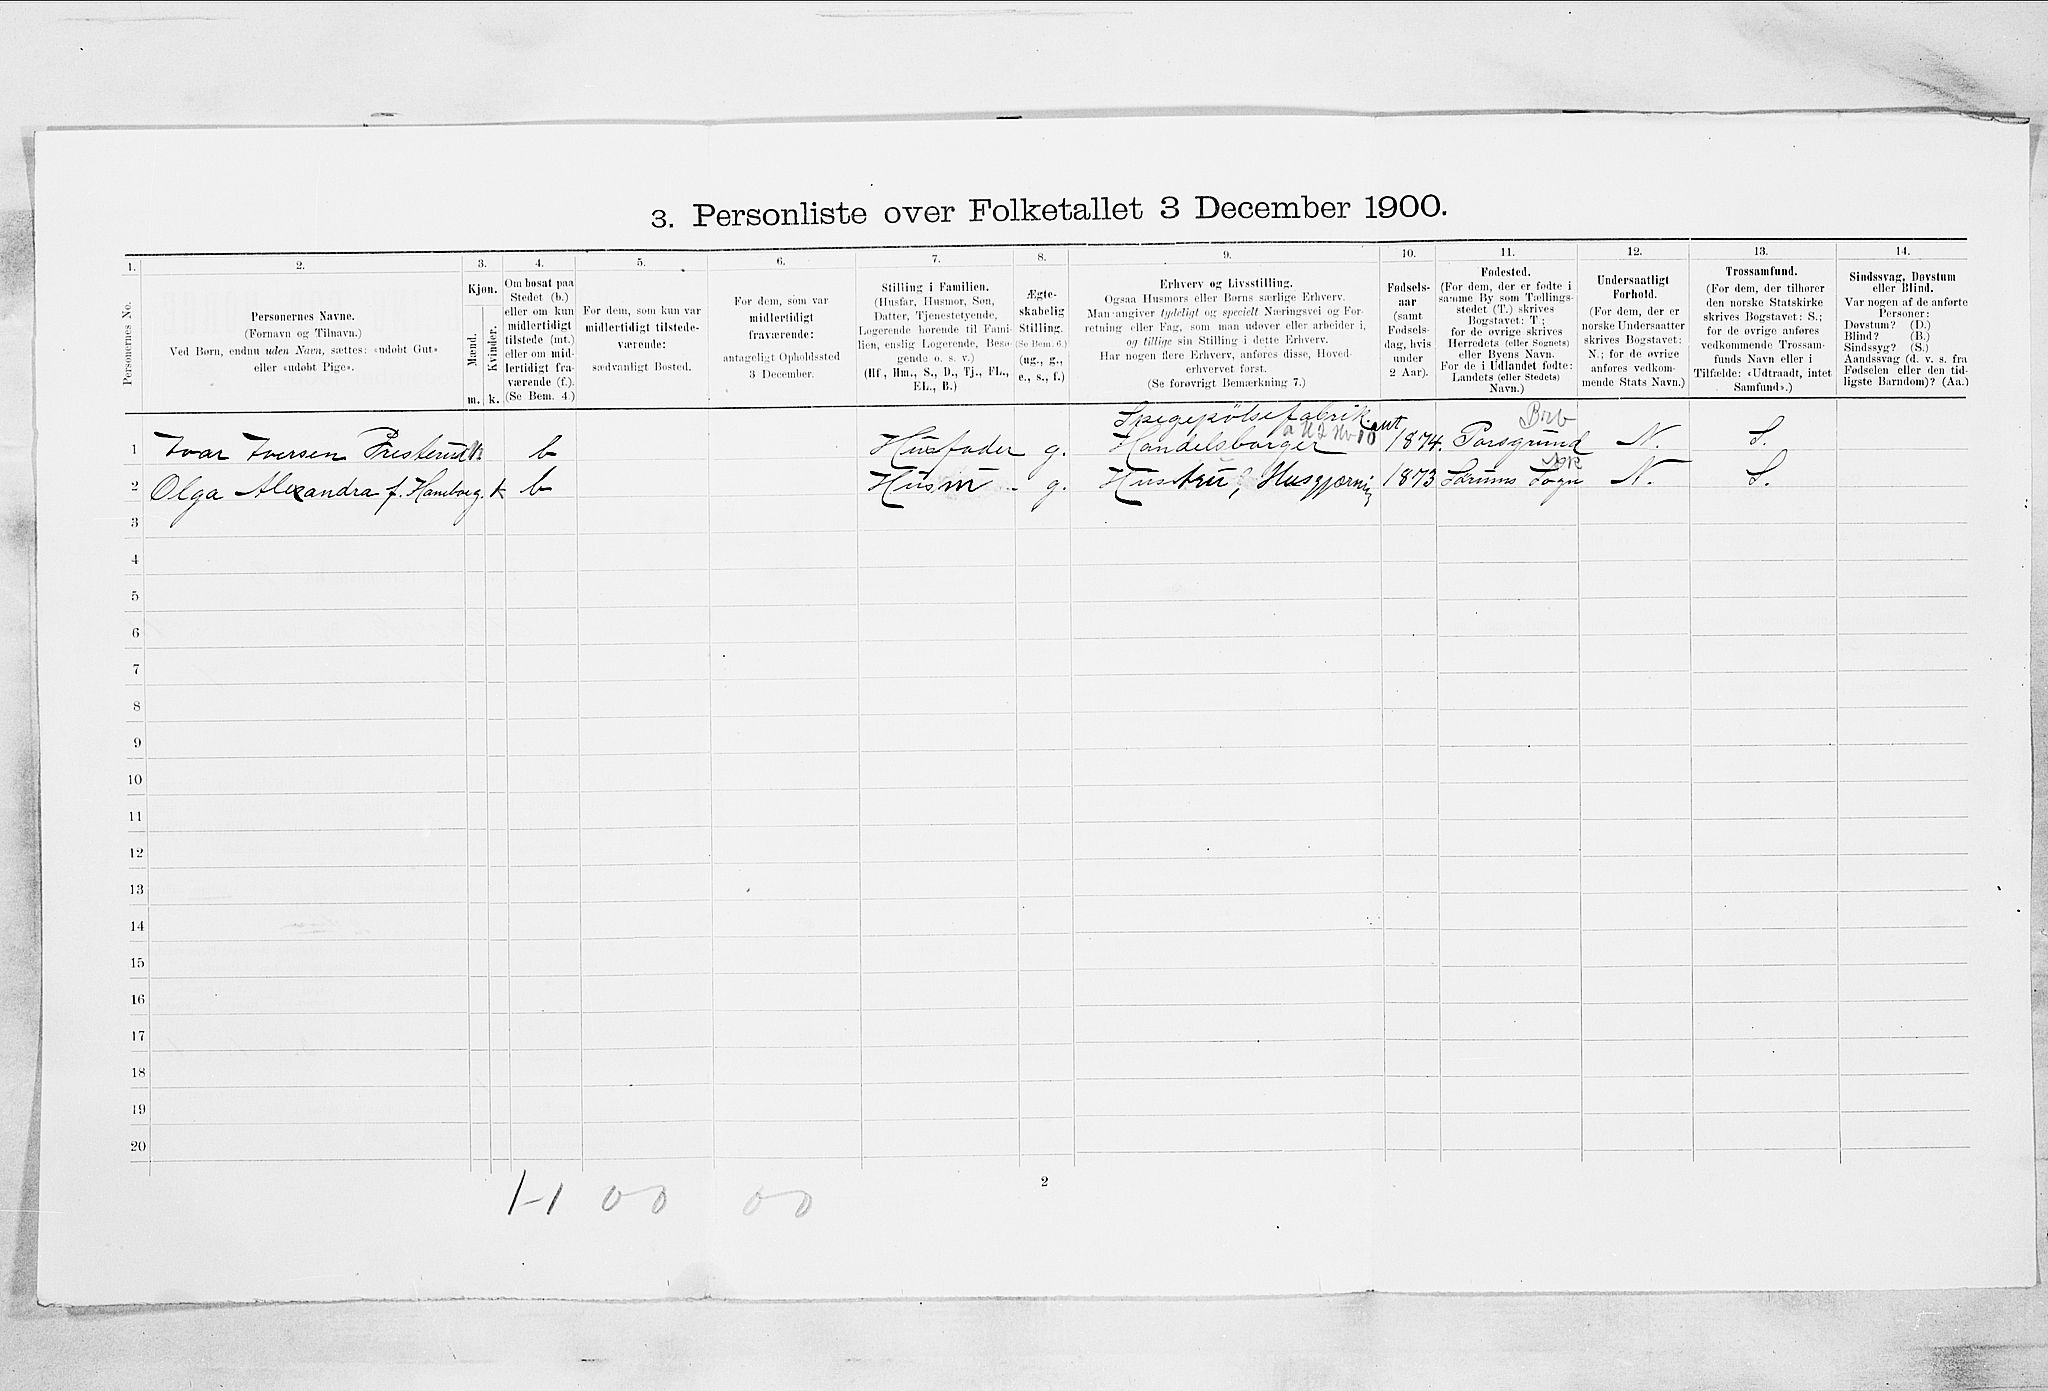 3. Personliste over Folketallet 3 December 1900.
1. 2. 3. 4. 5. 6. 7. 8. 9. 10. 11. 12. 13. 14.
Personernes No.
Personernes Navne.
(Fornavn og Tilnavn.)
Ved Børn, endnu uden Navn, sættes: «udøbt Gut»
eller «udøbt Pige».
Kjøn.
Mænd.
Kvinder.
m. k.
Om bosat paa
Stedet (b.)
eller om kun
midlertidigt
tilstede (mt.)
eller om mid-
lertidigt fra-
værende (f.).
(Se Bem. 4.)
For dem, som kun var
midlertidigt tilstede-
værende:
sædvanligt Bosted.
For dem, som var
midlertidigt
fraværende:
antageligt Opholdssted
3 December.
Stilling i Familien.
(Husfar, Husmor, Søn,
Datter, Tjenestetyende,
Logerende hørende til Fami-
lien, enslig Logerende, Besø-
gende o. s. v.)
(Hf., Hm., S., D., Tj., FL.,
EL., B.)
Ægte-
skabelig
Stilling.
(Se Bem. 6.)
(ug., g.,
e., s., f.)
Erhverv og Livsstilling.
Ogsaa Husmors eller Børns særlige Erhverv.
Man angiver tydeligt og specielt Næringsvei og For-
retning eller Fag, som man udøver eller arbeider i,
og tillige sin Stilling i dette Erhverv.
Har nogen flere Erhverv, anføres disse, Hoved-
erhvervet først.
(Se forøvrigt Bemærkning 7.)
Fødsels-
aar
(samt
Fødsels-
dag, hvis
under
2 Aar).
Fødested.
(For dem, der er fødte i
samme By som Tællings-
stedet (T.) skrives
Bogstavet: T;
for de øvrige skrives
Herredets (eller Sognets)
eller Byens Navn.
For de i Udlandet fødte:
Landets (eller Stedets)
Navn.)
Undersaatligt
Forhold.
(For dem, der er
norske Undersaatter
skrives Bogstavet:
N.; for de øvrige
anføres vedkom-
mende Stats Navn.)
Trossamfund.
(For dem, der tilhører
den norske Statskirke
skrives Bogstavet: S.;
for de øvrige anføres
vedkommende Trossam-
funds Navn eller i
Tilfælde: «Udtraadt, intet
Samfund».)
Sindssvag, Døvstum
eller Blind.
Var nogen af de anførte
Personer:
Døvstum? (D.)
Blind? (B.)
Sindssyg? (S.)
Aandssvag (d. v. s. fra
Fødselen eller den tid-
ligste Barndom)? (Aa.)
Spegepölsefabrikant
1 Ivar Iversen b Husfader g. Handelsborger 1874. Porsgrund N. S.
2 Olga Alexandra f. k b Husm - g. Hustru, Husgjerning 1873 Sørums Sogn N. S.
3
4
5
6
7
8
9
10
11
12
13
14
15
16
17
18
19
20
1-1 00 00
2